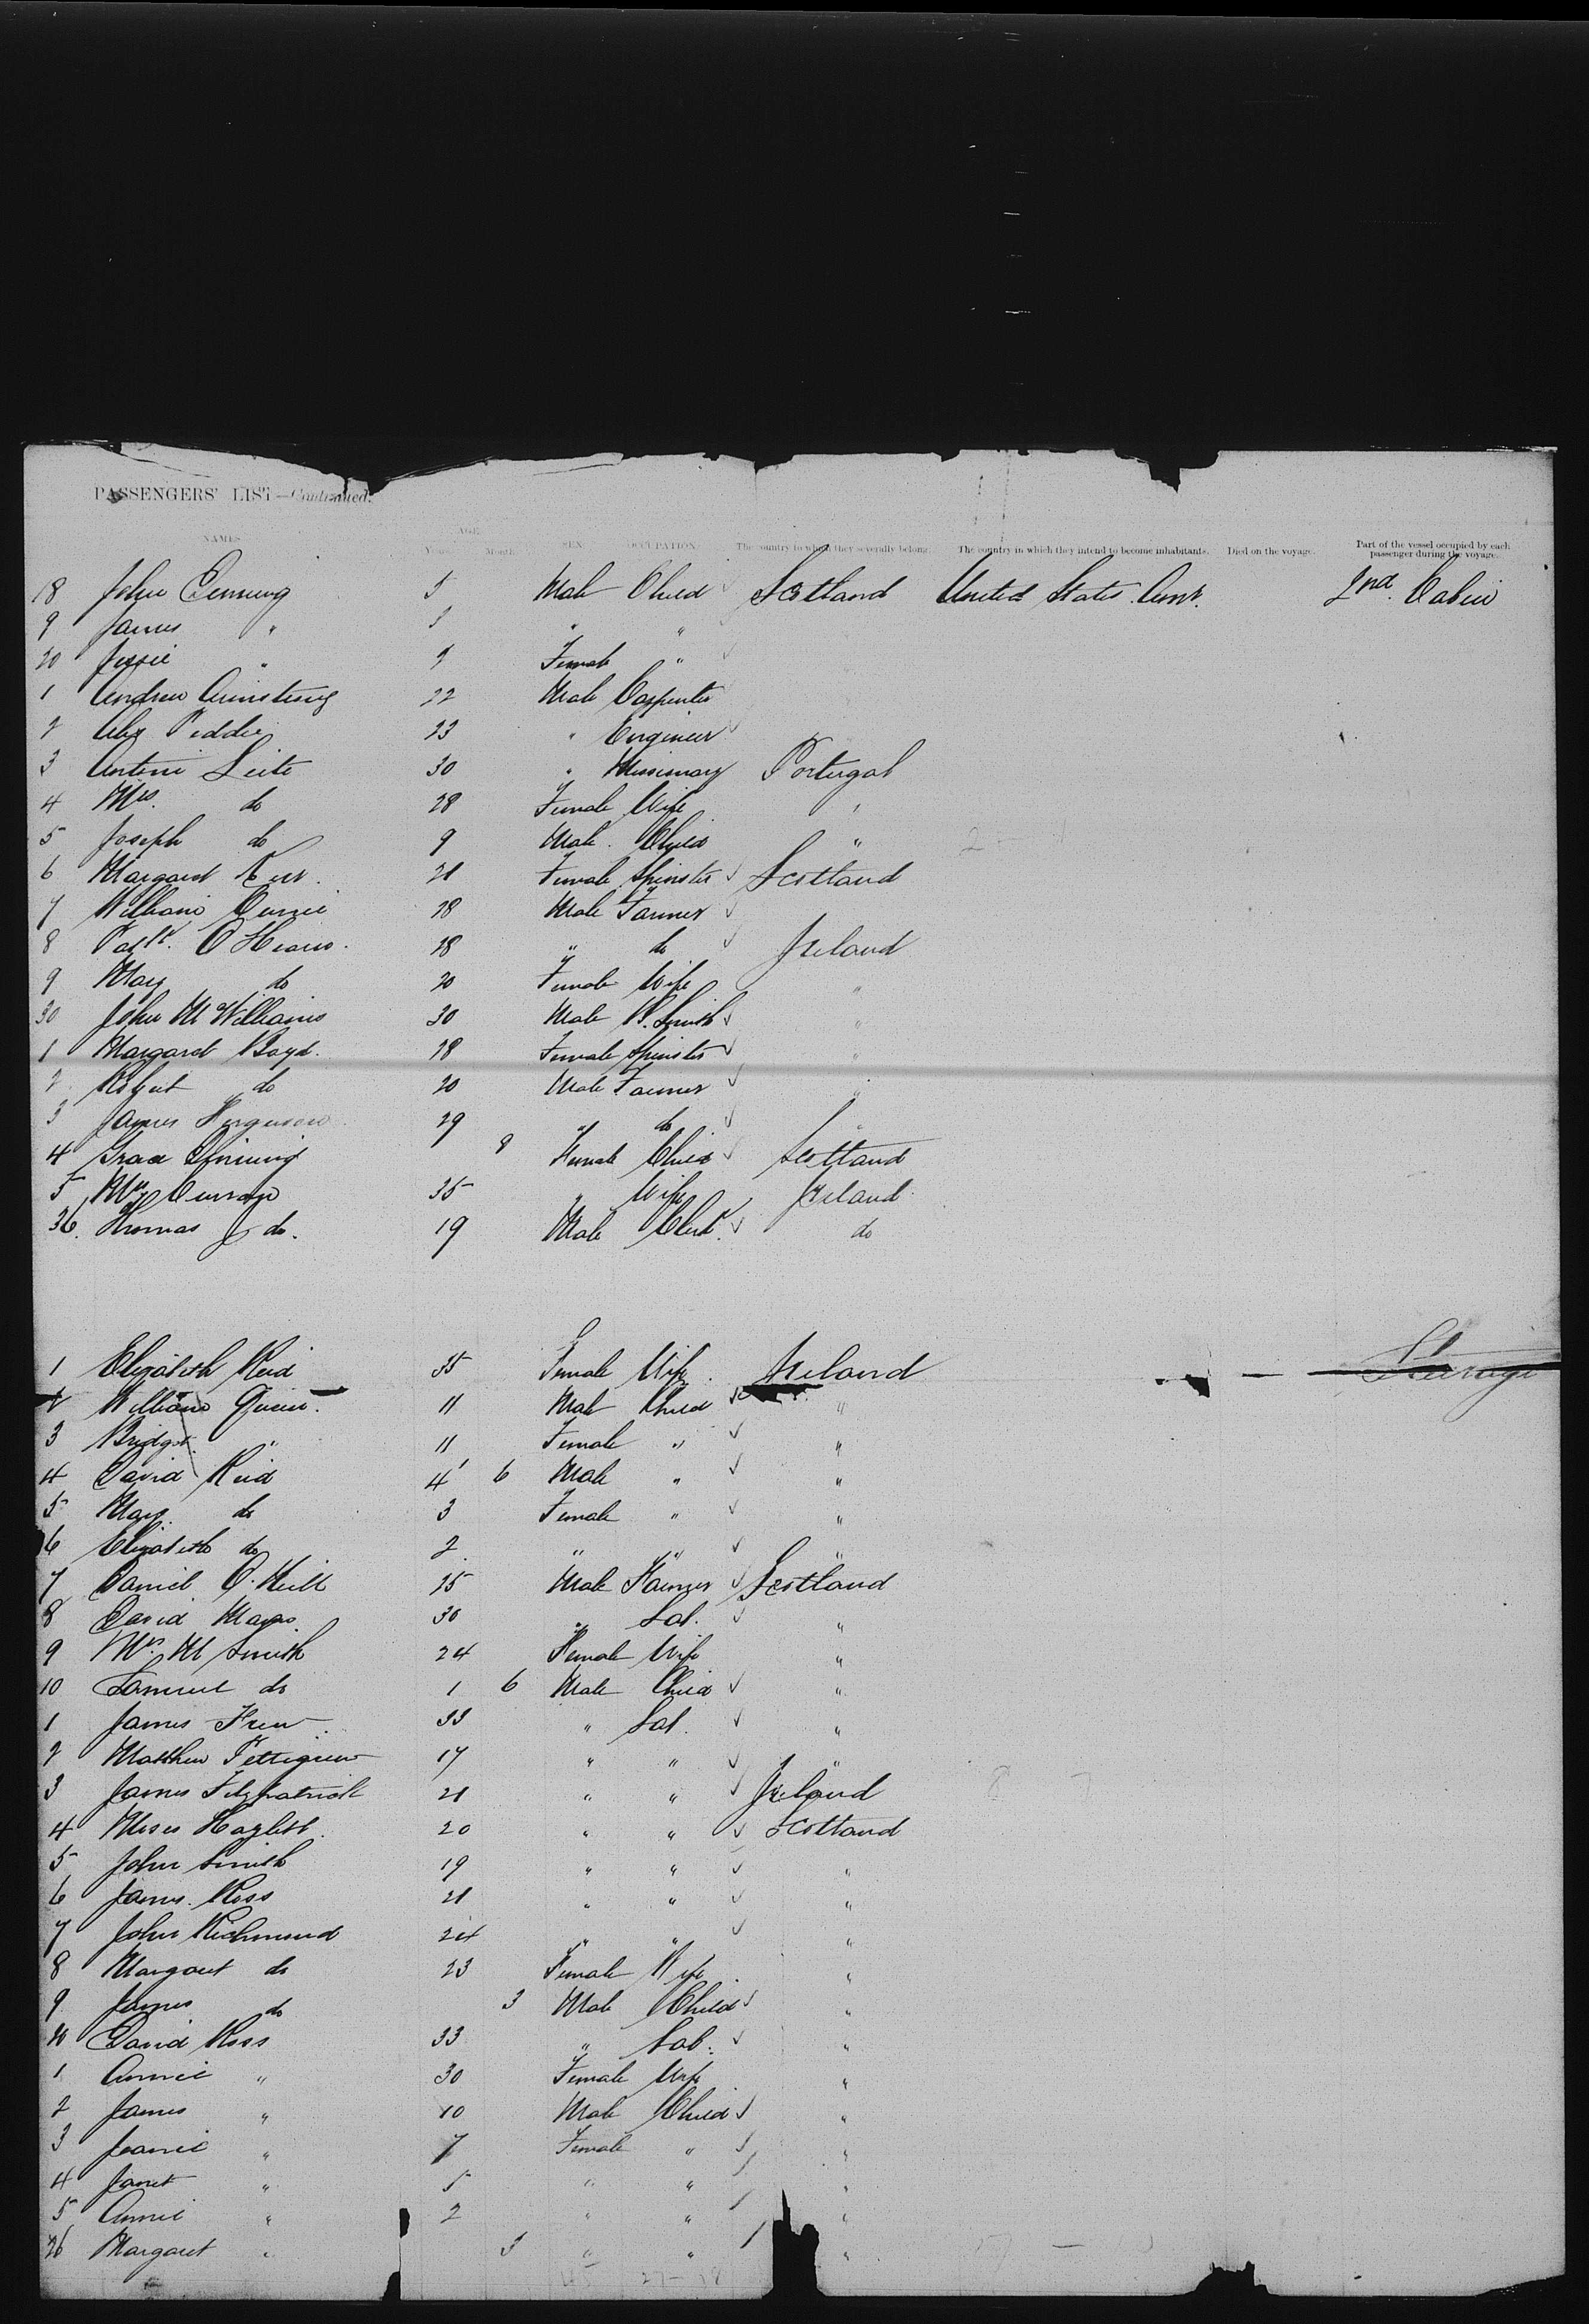 PASSENGERS' LIST—Continued.
NAMES AGE Years Months SEX OCCUPATION The country to which they severally belong. The country in which they intend to become inhabitants. Died on the voyage. Part of the vessel occupied by each passenger during the voyage.
18 John 5 Male Child Scotland United States Amr. 2nd Cabin
9 James " " "
20 Jessie " Female "
1 Andrew Armstrong 22 Male Carpenter
2 Alex Peddie 23 " Engineer
3 Antoni Leite 30 " Missionary Portugal
4 Mrs. do 28 Female Wife "
5 Joseph do 9 Male Child "
6 Margaret Kerr. 21 Female Spinster Scotland
7 William Currie 28 Male Farmer
8 Patk. O'Hearn. 28 " do Ireland
9 Mary do 20 Female Wife "
30 John McWilliams 30 Male B. Smith "
1 Margaret Boyd. 18 Female Spinster "
2 Robert do 20 Male Farmer "
3 James Ferguson 29 " do "
4 Grace 9 Female Child Scotland
5 Curran 35 " Wife Ireland
36. Thomas J do. 19 Male Clerk do
1 Elizabeth Reid 35 Female Wife Ireland Steerage
2 William Quinn. 11 Male Child "
3 Bridget " 11 Female " "
4 David Reid 4 6 Male " "
5 Mary do 3 Female " "
6 Elizabeth do 2 " " "
7 Daniel O'Neill 25 Male Farmer Scotland
8 David 30 " Lab. "
9 Mrs. M Smith 24 Female Wife "
10 Samuel do 1 6 Male Child "
1 James Frew 33 " Lab. "
2 Matthew Pettigrew 17 " " "
3 James Fitzpatrick 21 " " Ireland
4 Moses Hazlett 20 " " Scotland
5 John Smith 19 " " "
6 James Ross 21 " " "
7 John Richmond 24 " " "
8 Margaret do 23 Female Wife "
9 James do 3 Male Child "
20 David Ross 33 " Lab. "
1 Annie " 30 Female Wife "
2 James " 10 Male Child "
3 Jeanie " 7 Female " "
4 Janet " 5 " " "
5 Annie " 2 " " "
26 Margaret " 3 " " "